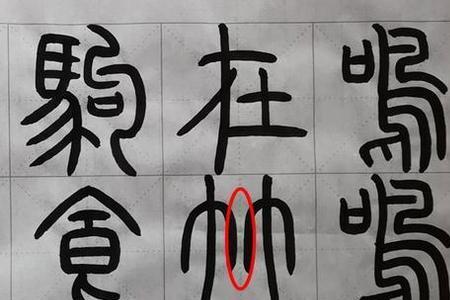 鳴鳴
在竹
駒食